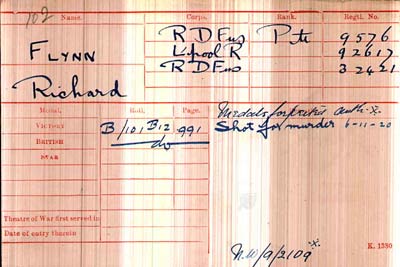 102
Name. Corps. Rank. Regtl. No.
FLYNN R D Fus Pte 9576
L'pool R 92617
Richard R D Fus 32421
Medal. Roll. Page.
Medals forfeited auth. *.
VICTORY B/101 B12 991 Shot for murder 6-11-20
BRITISH do
WAR
Theatre of War first served in
Date of entry therein
K. 1380
N.W/9/2109 *